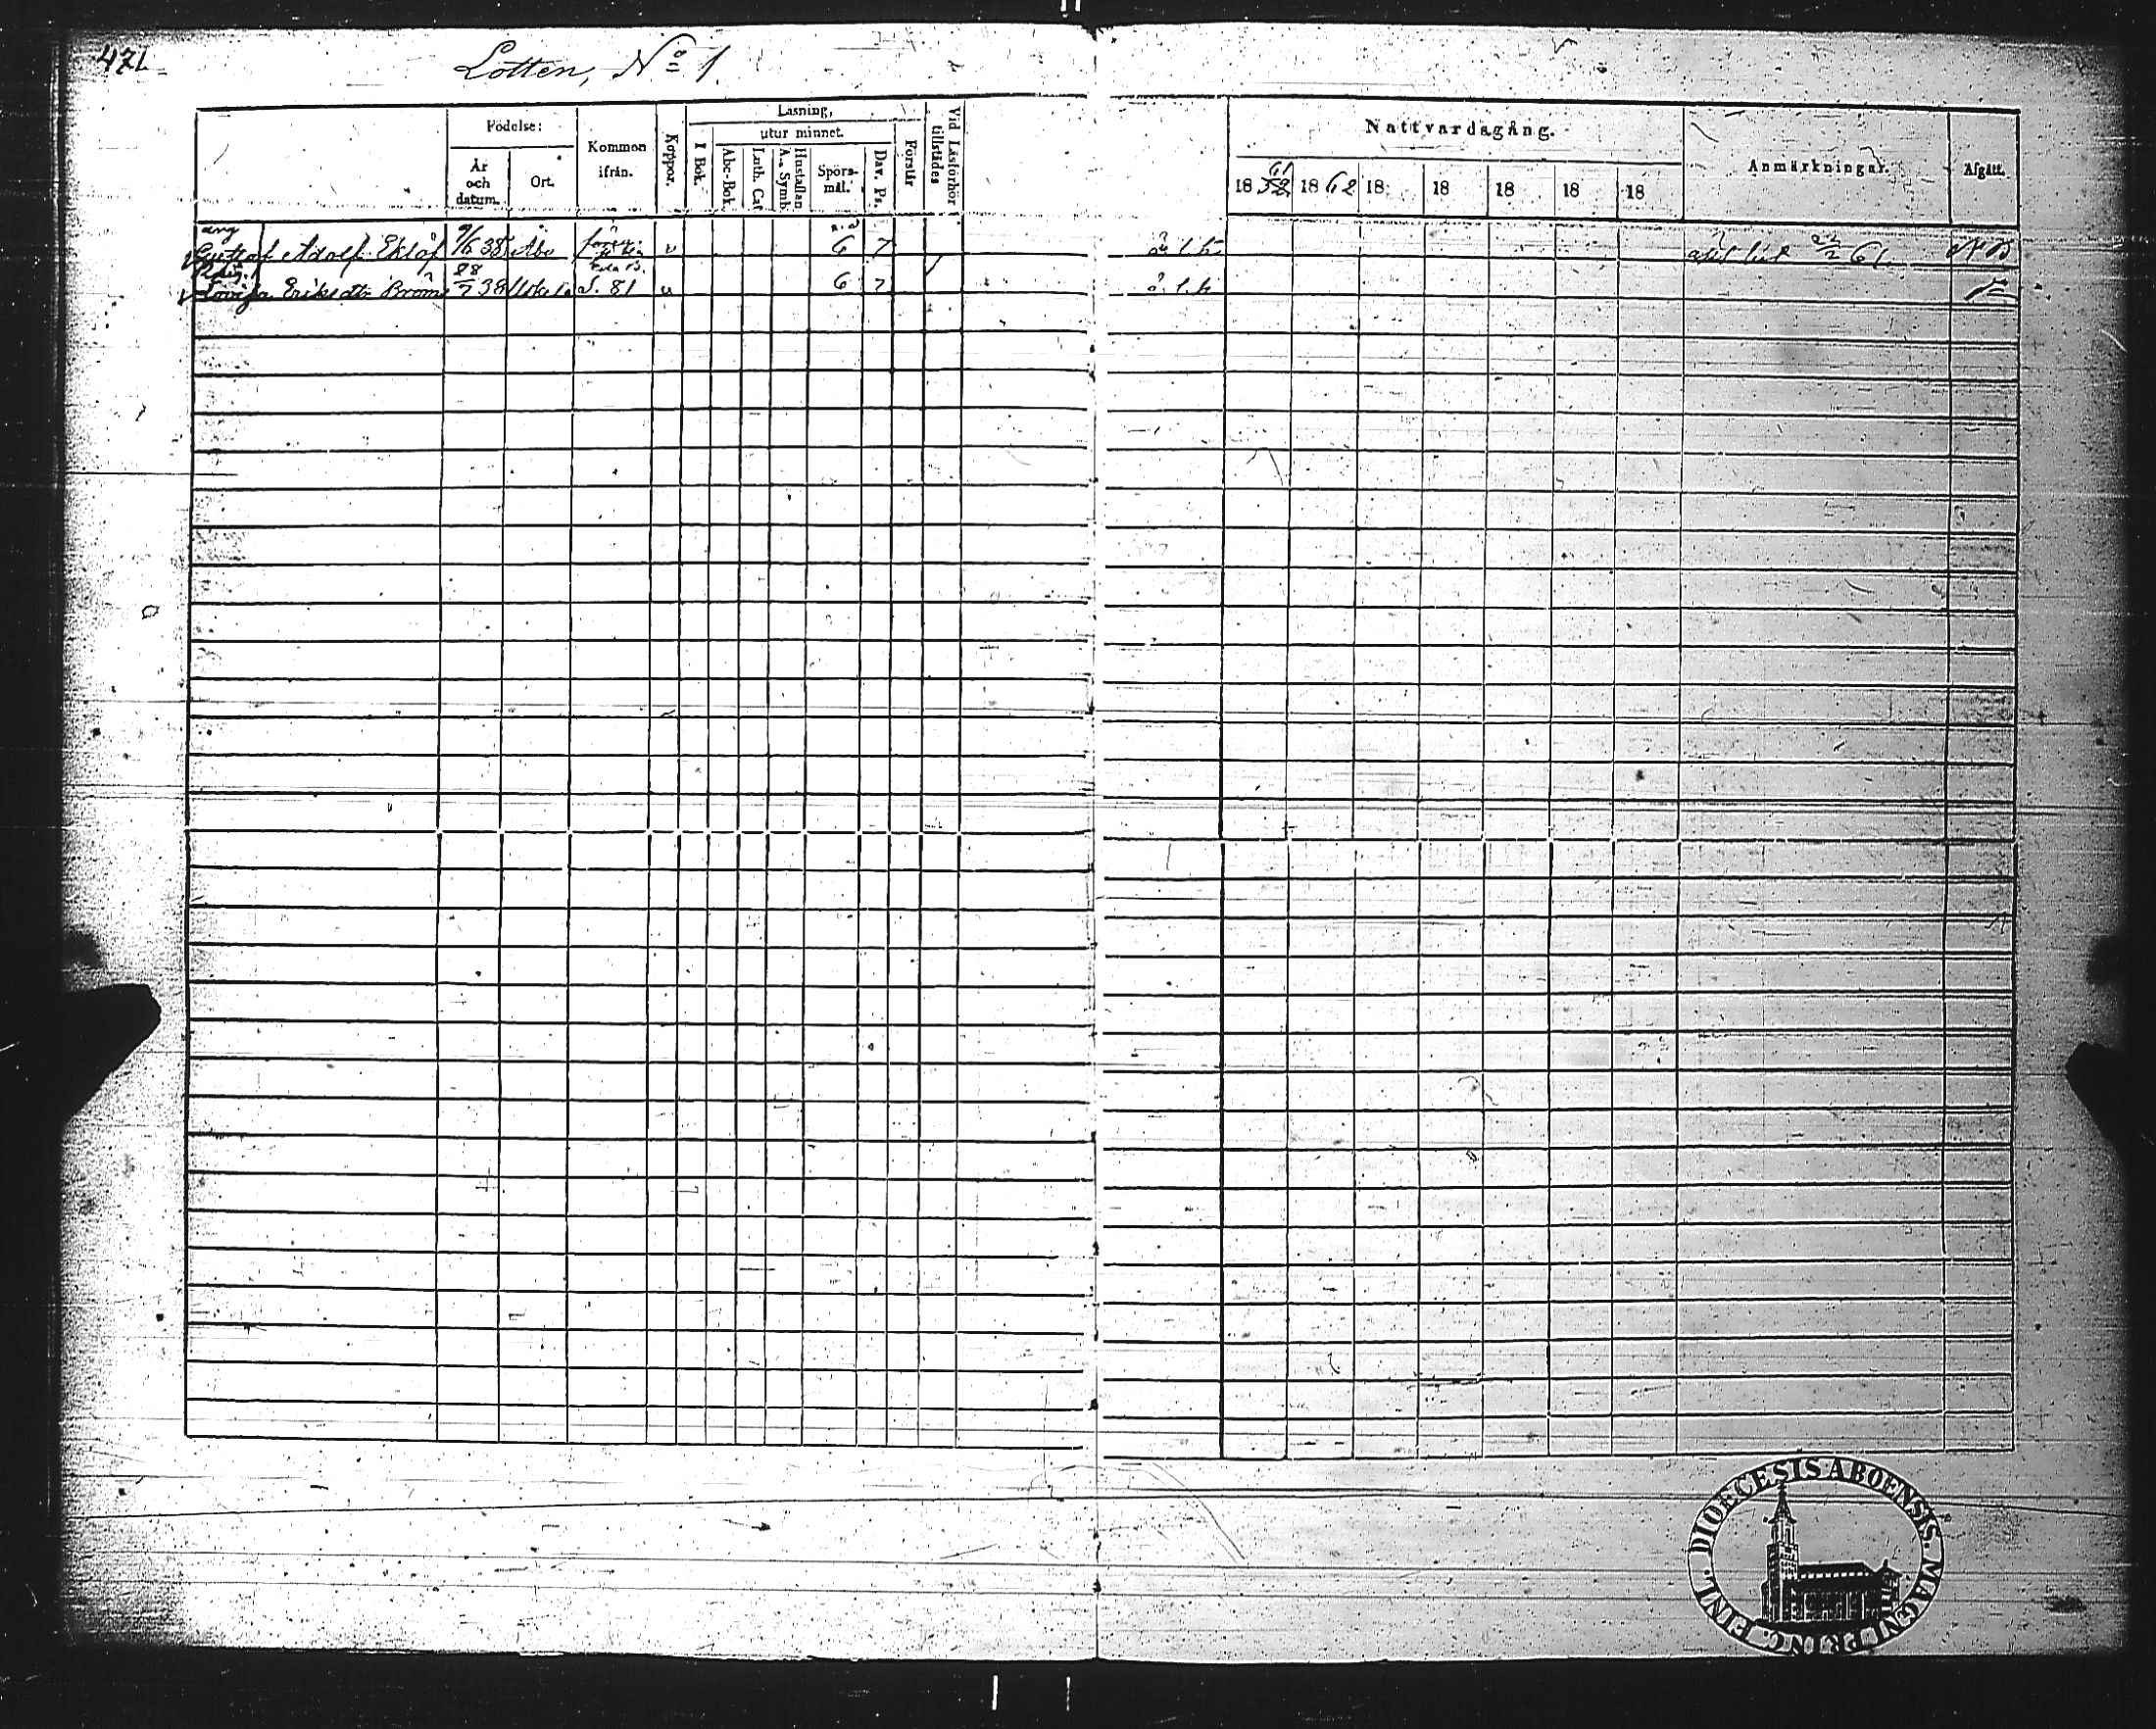 471
Lotten, No 1
Födelse:
År och datum.
Ort.
Kommen ifrån.
Koppor.
Läsning,
I Bok.
utur minnet.
Abc-Bok.
Luth. Cat.
Hustaflan A.. Symb.
Spörsmål.
Dav. Ps.
Förstår
Vid Läsförhör tillstädes
Nattvardsgång.
1861 1862 18 18 18 18 18
Anmärkningar.
Afgått.
Gustaf Adolf Eklöf 9/6 38 Åbo 6 7 å. l. h. 61
Lovisa Eriksdtr Bröm 28/7 38 S. 81 6 7 å. l. h
FINL. DIOECESIS ABOENSIS. MAGNI PRINC.